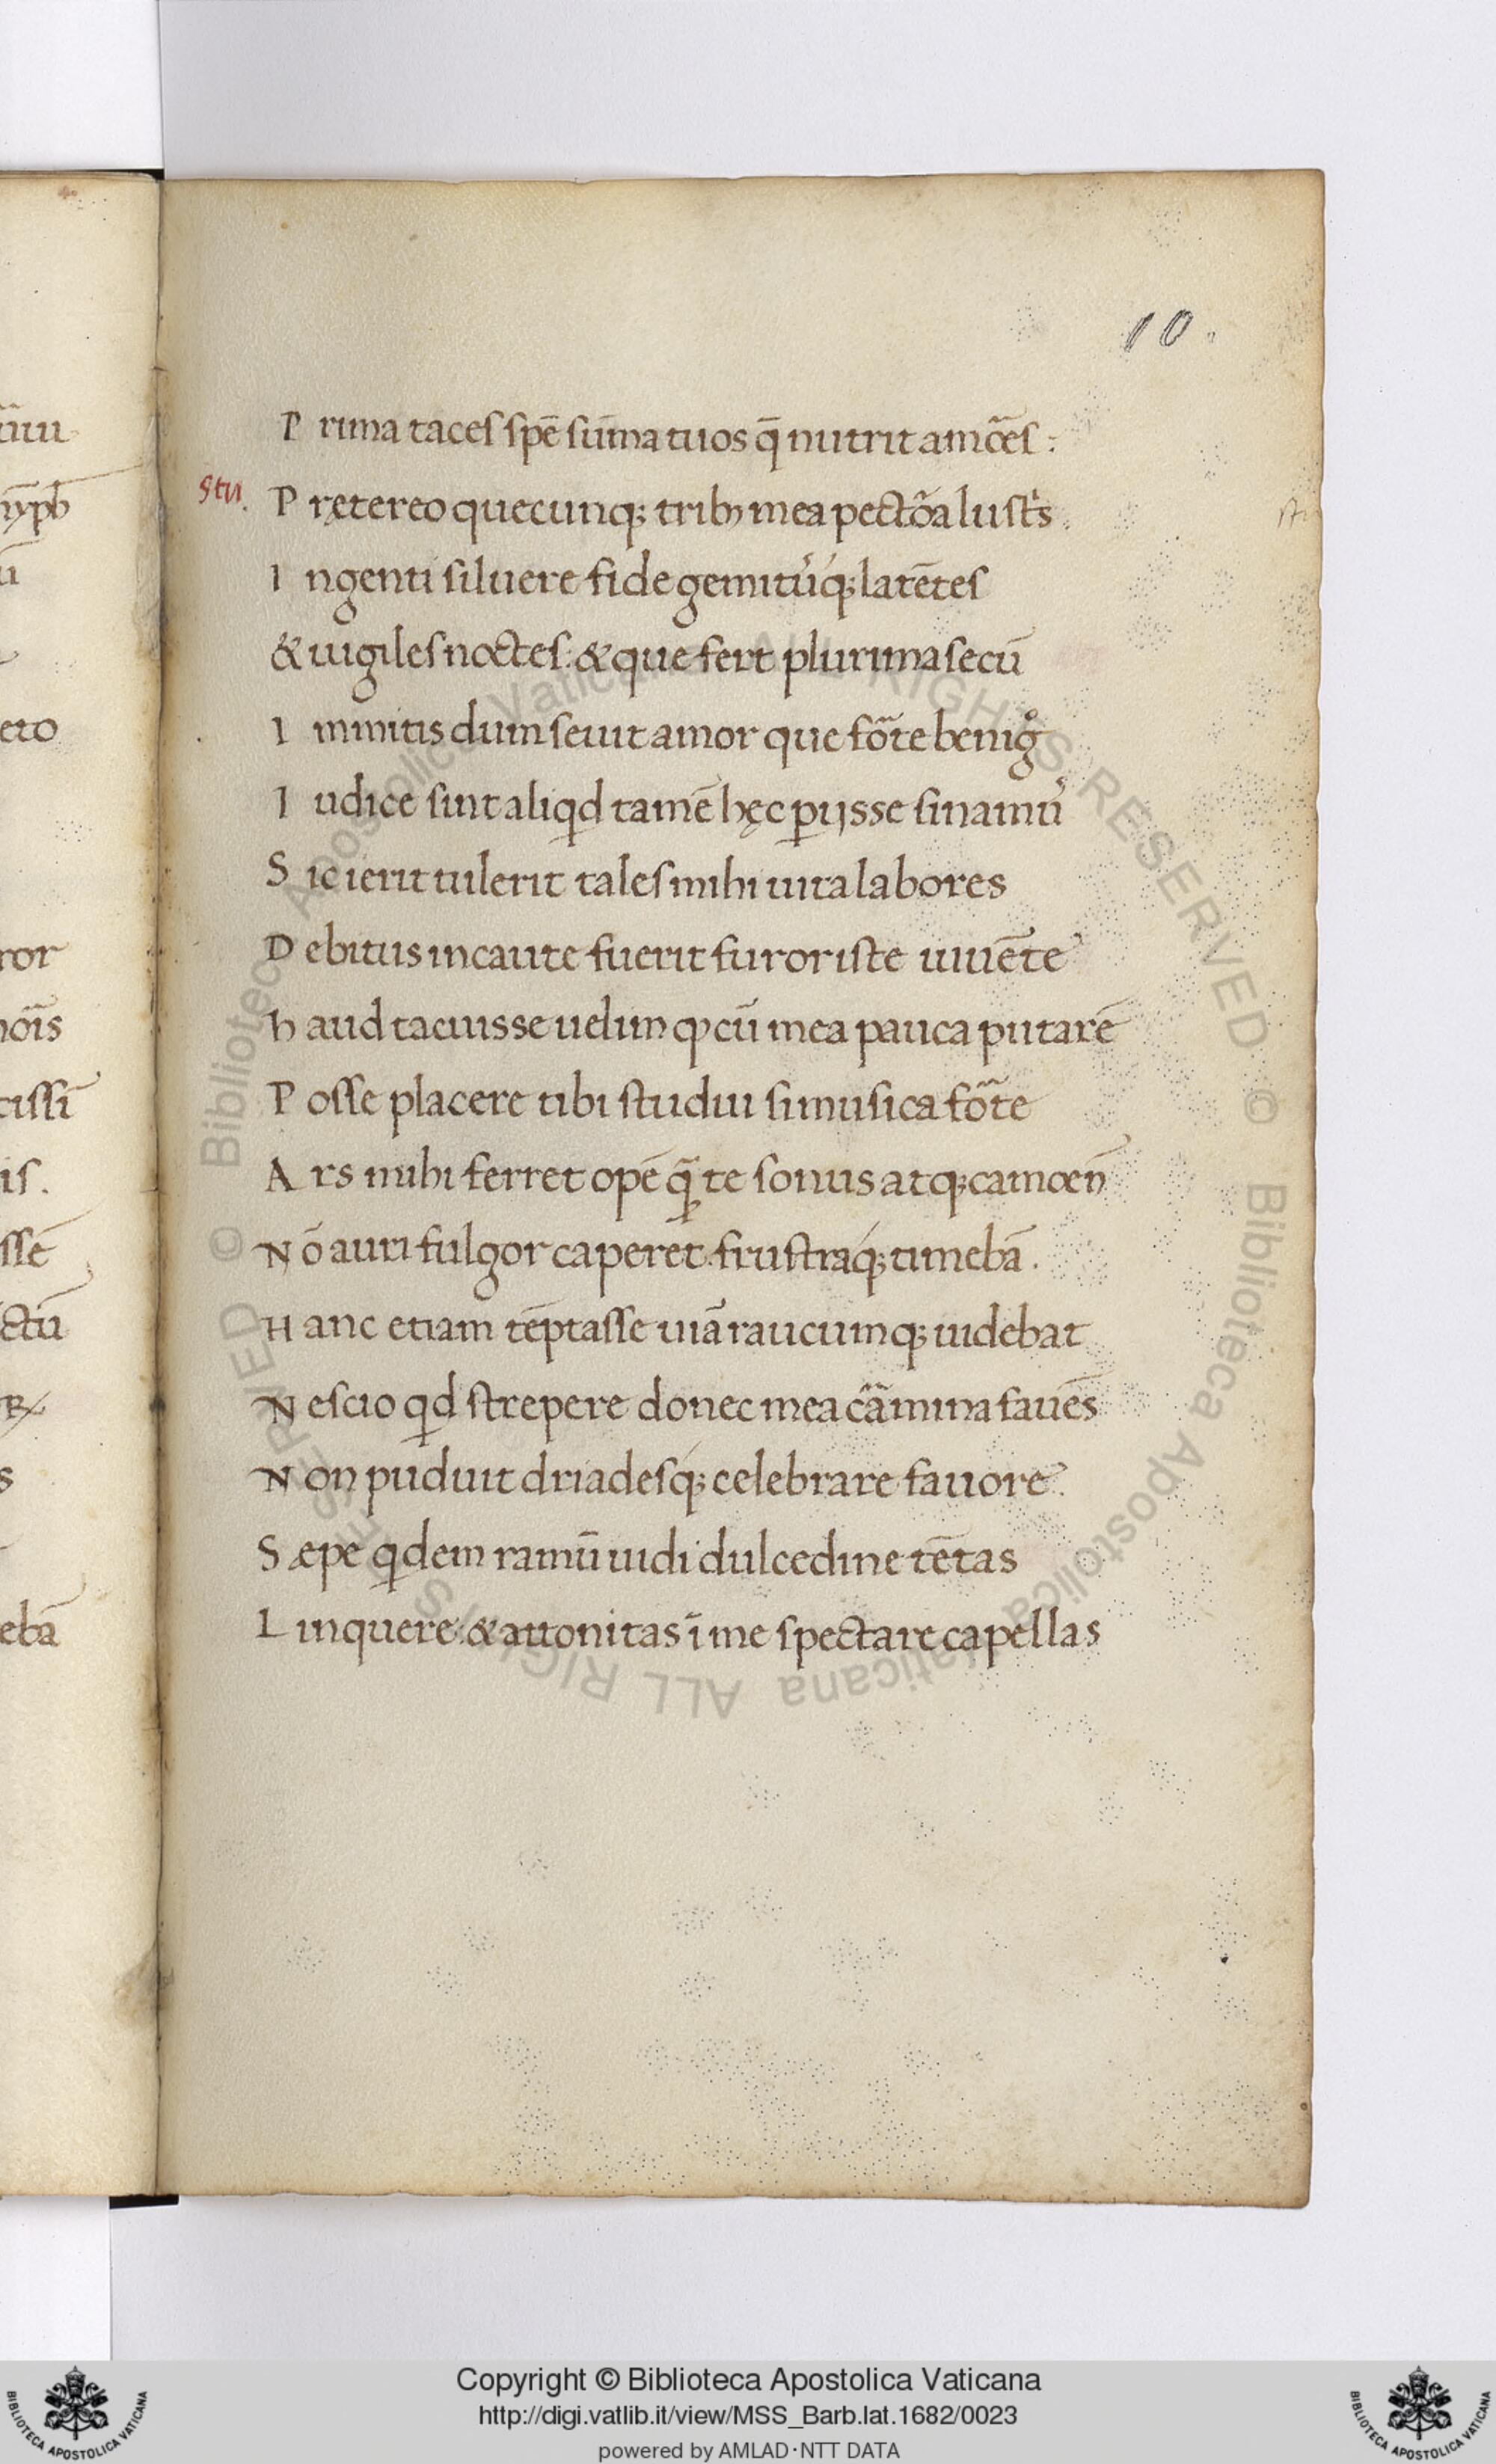 10.
P rima taces spē sum̄a tuos q̄ nutrit amoᷓes :
Stu.
P rętereo quecunq; trib; mea pectoᷓa lustⁱs
I ngenti siluere fide gemitu᷒q; latētes
& uigiles noctes: & que fert plurima secū
I mmitis dum seuit amor que foᷓte benigͦ
I udice sint aliqd tamē hęc ꝑijsse sinamu᷒
S ic ierit tulerit tales mihi uita labores
D ebitus incaute fuerit furor iste iuuēte
h aud tacuisse uelim ꝙ cū mea pauca putarē
P osse placere tibi studui si musica foᷓte
A rs mihi ferret opē q̄ te sonus atq; camoen̄
N ō auri fulgor caperet. frustraq; timebā .
H anc etiam tēptasse uiā raucumq; uidebat
N escio qd strepere donec mea caᷓmina fauēs
N on puduit driadesq; celebrare fauore.
S æpe qdem ramū uidi dulcedine tētas
L inquere: & attonitas ī me spectare capellas
Copyright © Biblioteca Apostolica Vaticana
http://digi.vatlib.it/view/MSS_Barb.lat.1682/0023
powered by AMLAD·NTT DATA